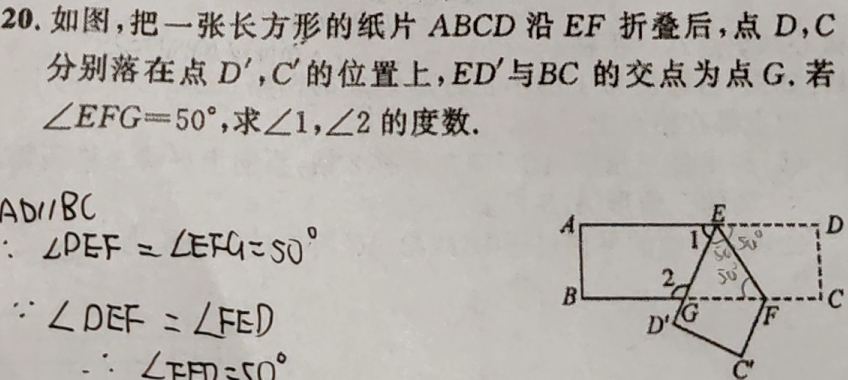 20. 如图,把一张长方形的纸片 ABCD 沿 EF 折叠后,点 D,C
分别落在点 D′,C′的位置上,ED′与BC 的交点为点 G. 若
∠EFG=50°,求∠1,∠2 的度数.
AD//BC
∴ ∠DEF = ∠EFG=50°
∵ ∠DEF = ∠FED
∴ ∠FED=50°
A E D
1 50 50°
2 50°
B G F C
D′
C′